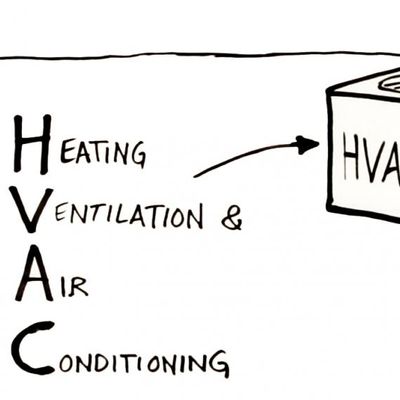 HEATING
VENTILATION &
AIR
CONDITIONING
HVA